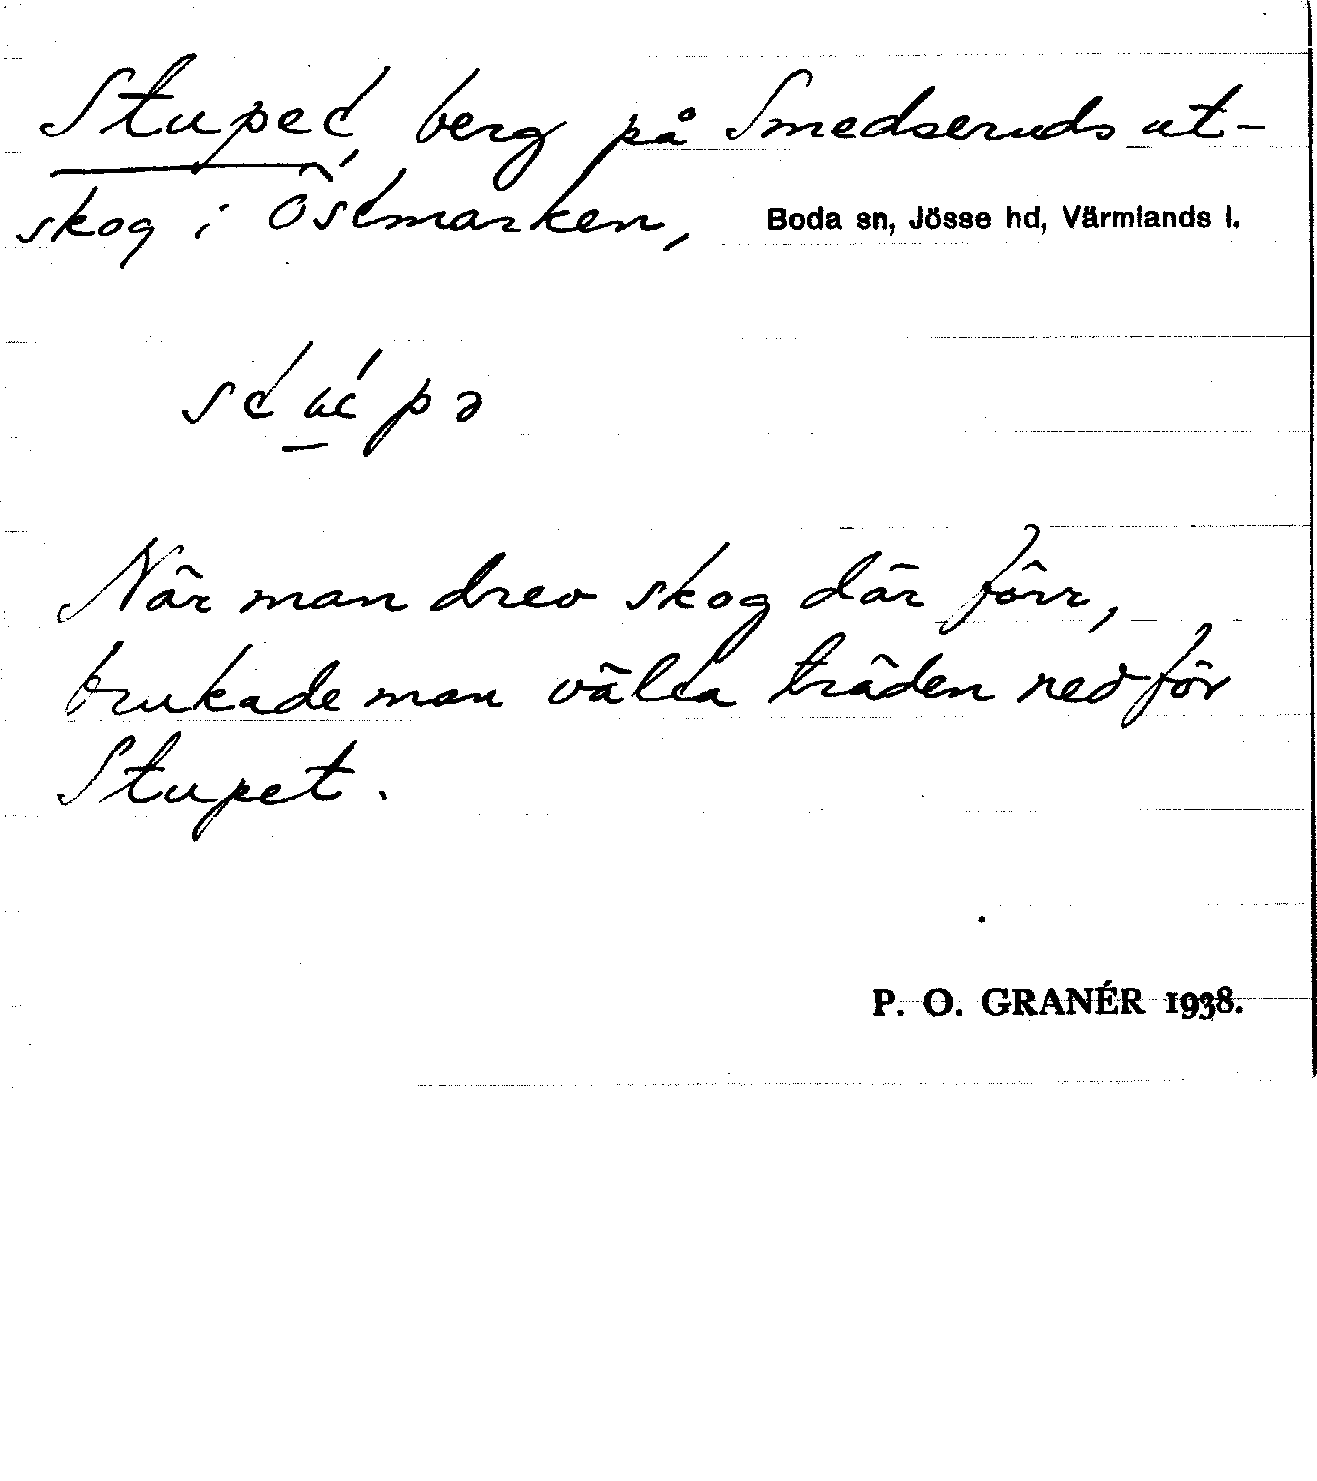 Stupet, berg på Smedseruds ut-
skog i Östmarken, Boda sn, Jösse hd, Värmlands l.
När man drev skog där förr,
brukade man välta träden nedför
Stupet.
P. O. GRANÉR 1938.